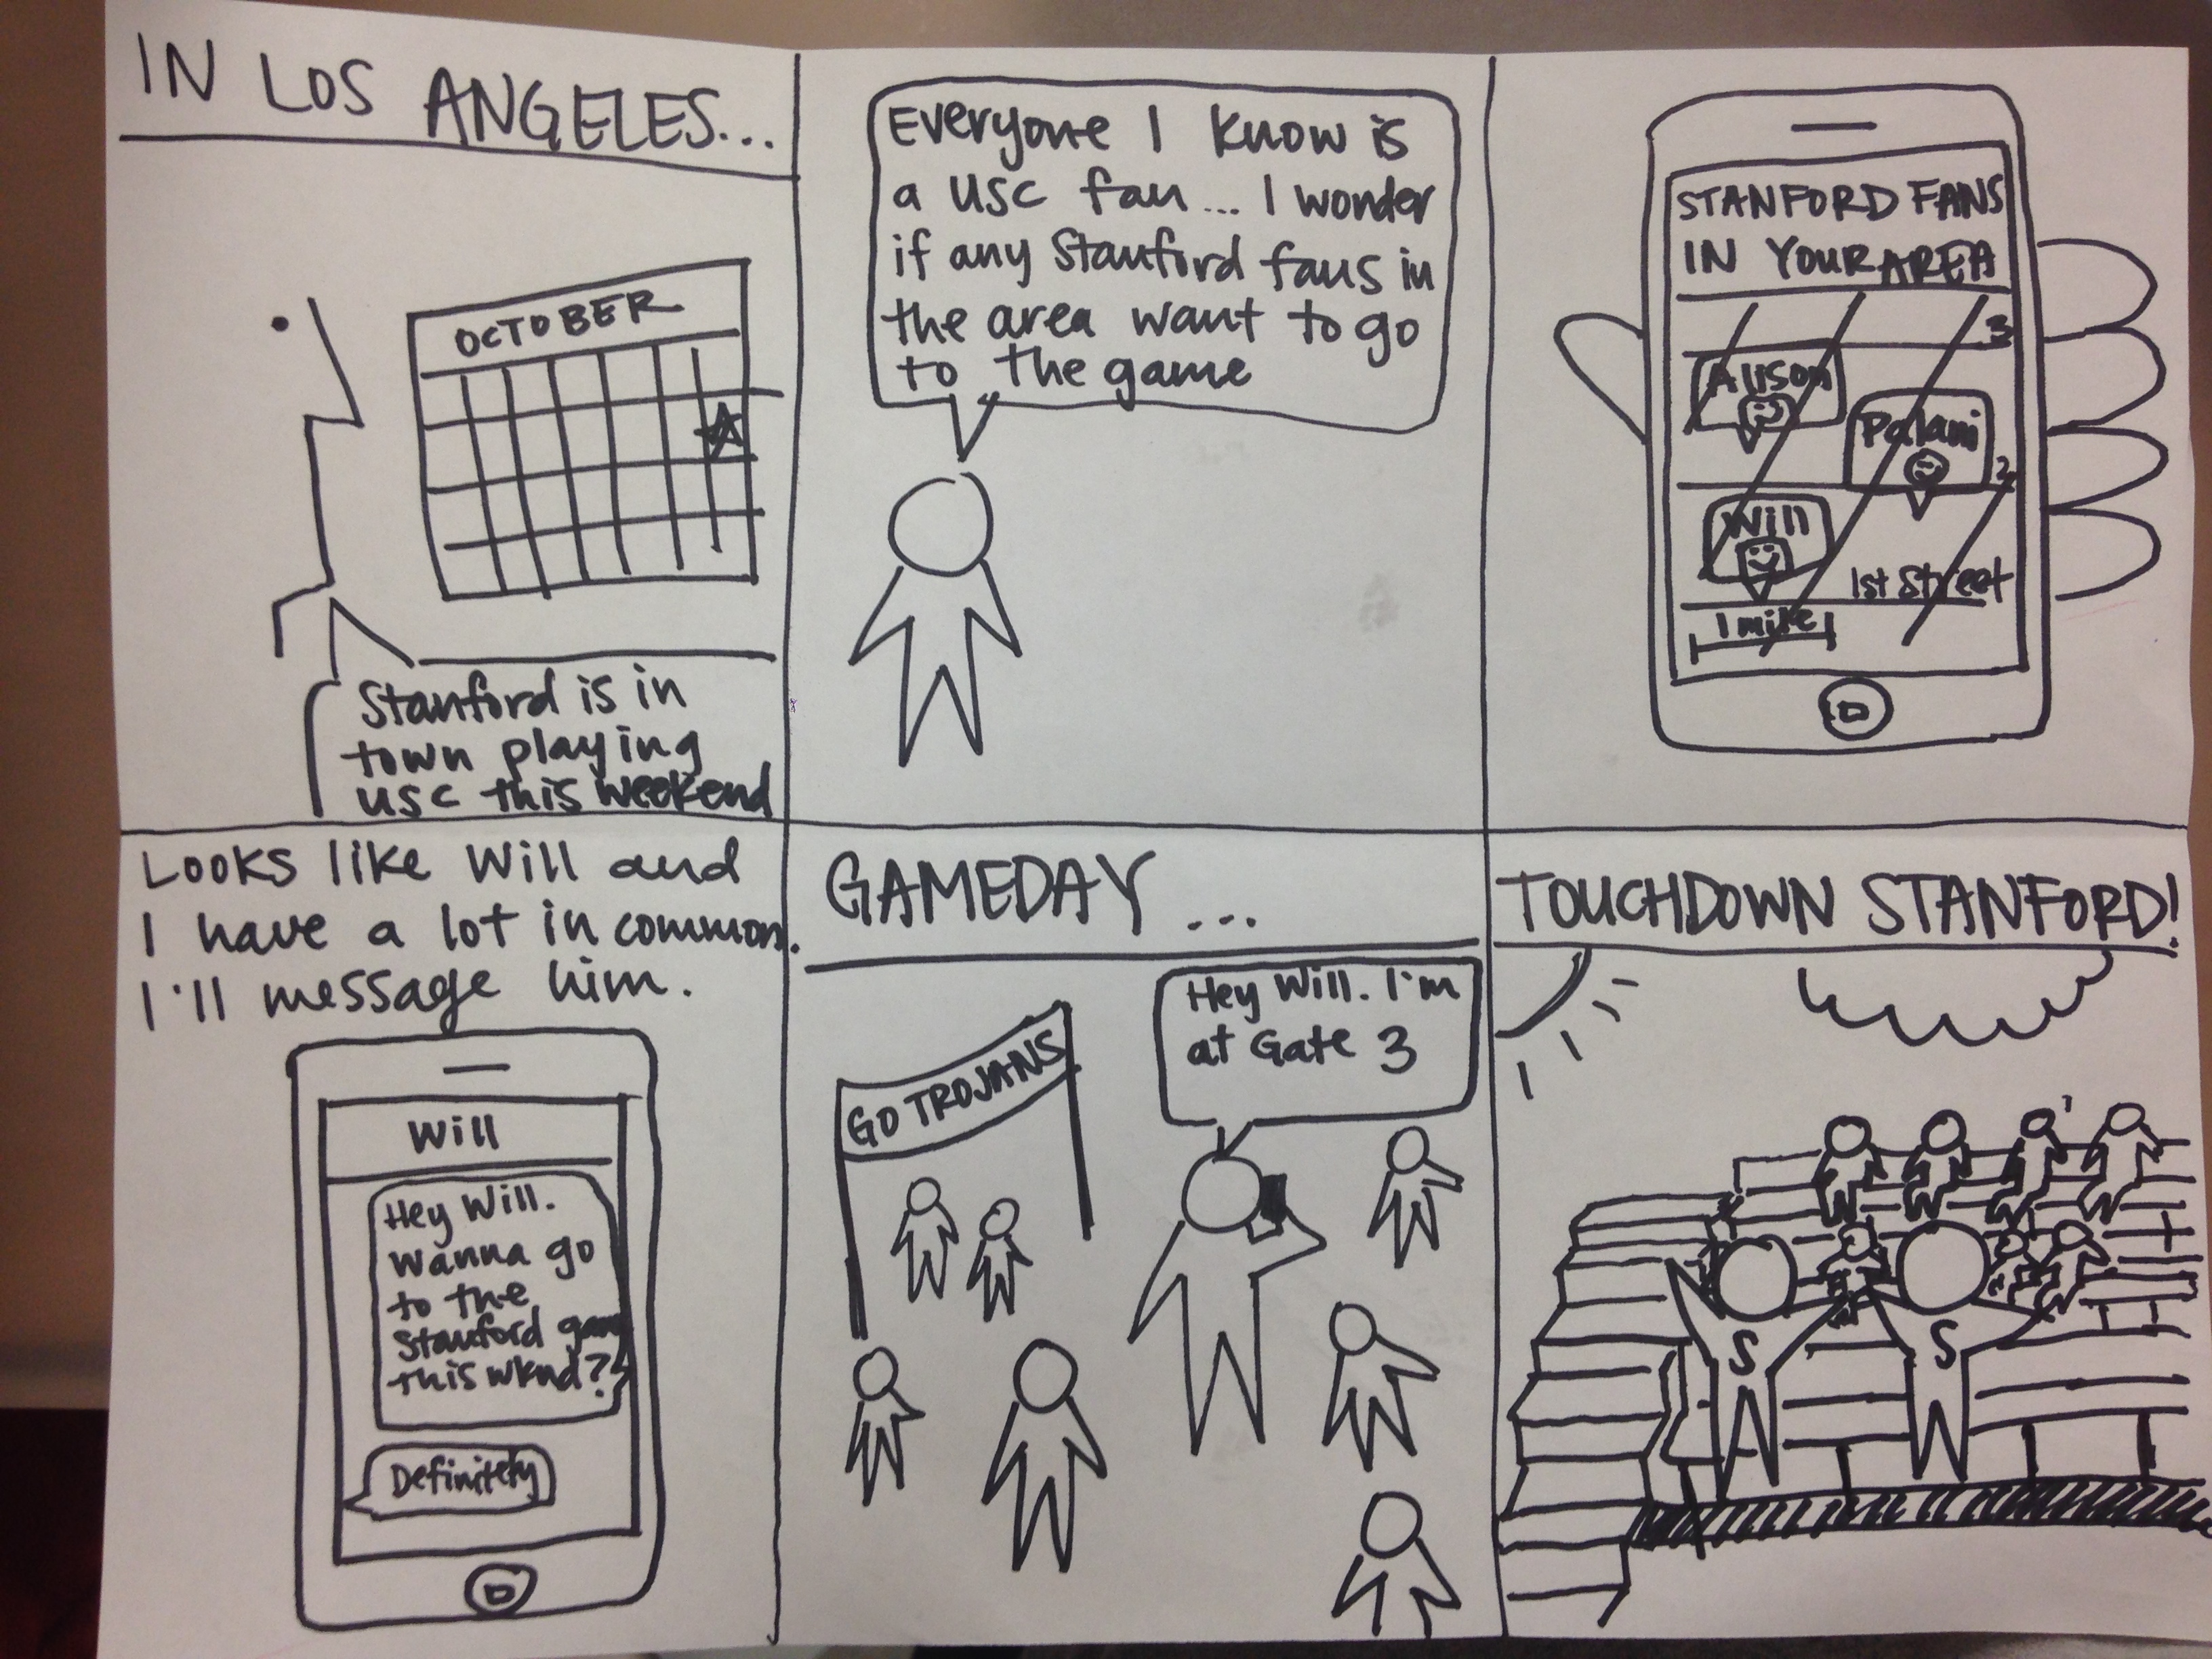 IN LOS ANGELES...
OCTOBER
Stanford is in
town playing
USC this weekend
Everyone I know is
a USC fan... I wonder
if any Stanford fans in
the area want to go
to the game
STANFORD FANS
IN YOUR AREA
3
Alison
Palani
2
Will
1st Street
1 mile
Looks like Will and
I have a lot in common.
I'll message him.
Will
Hey Will.
Wanna go
to the
Stanford game
this wknd?
Definitely
GAMEDAY...
Hey Will. I'm
at Gate 3
GO TROJANS
TOUCHDOWN STANFORD!
S
S